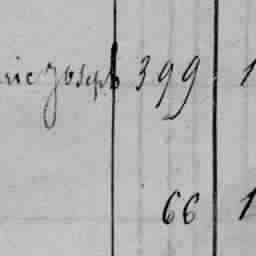 rie Joseph 399 1
66 1